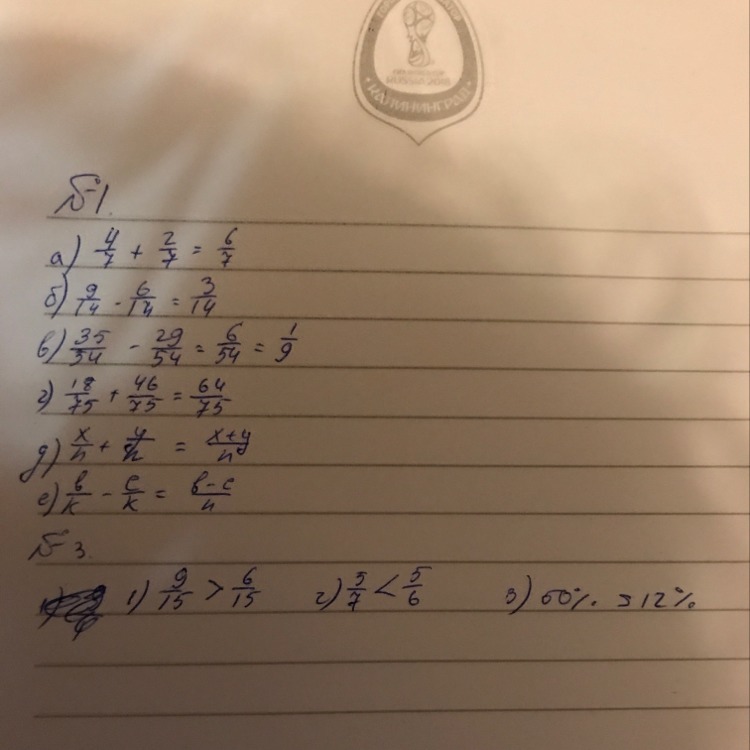 RUSSIA 2018
КАЛИНИНГРАД
№1.
а) 4/7 + 2/7 = 6/7
б) 9/14 - 6/14 = 3/14
в) 35/54 - 29/54 = 6/54 = 1/9
г) 18/75 + 46/75 = 64/75
д) x/n + y/n = x+y/n
е) в/к - с/к = в-с/n
№3.
1) 9/15 > 6/15 2) 5/7 < 5/6 3) 60% > 12%